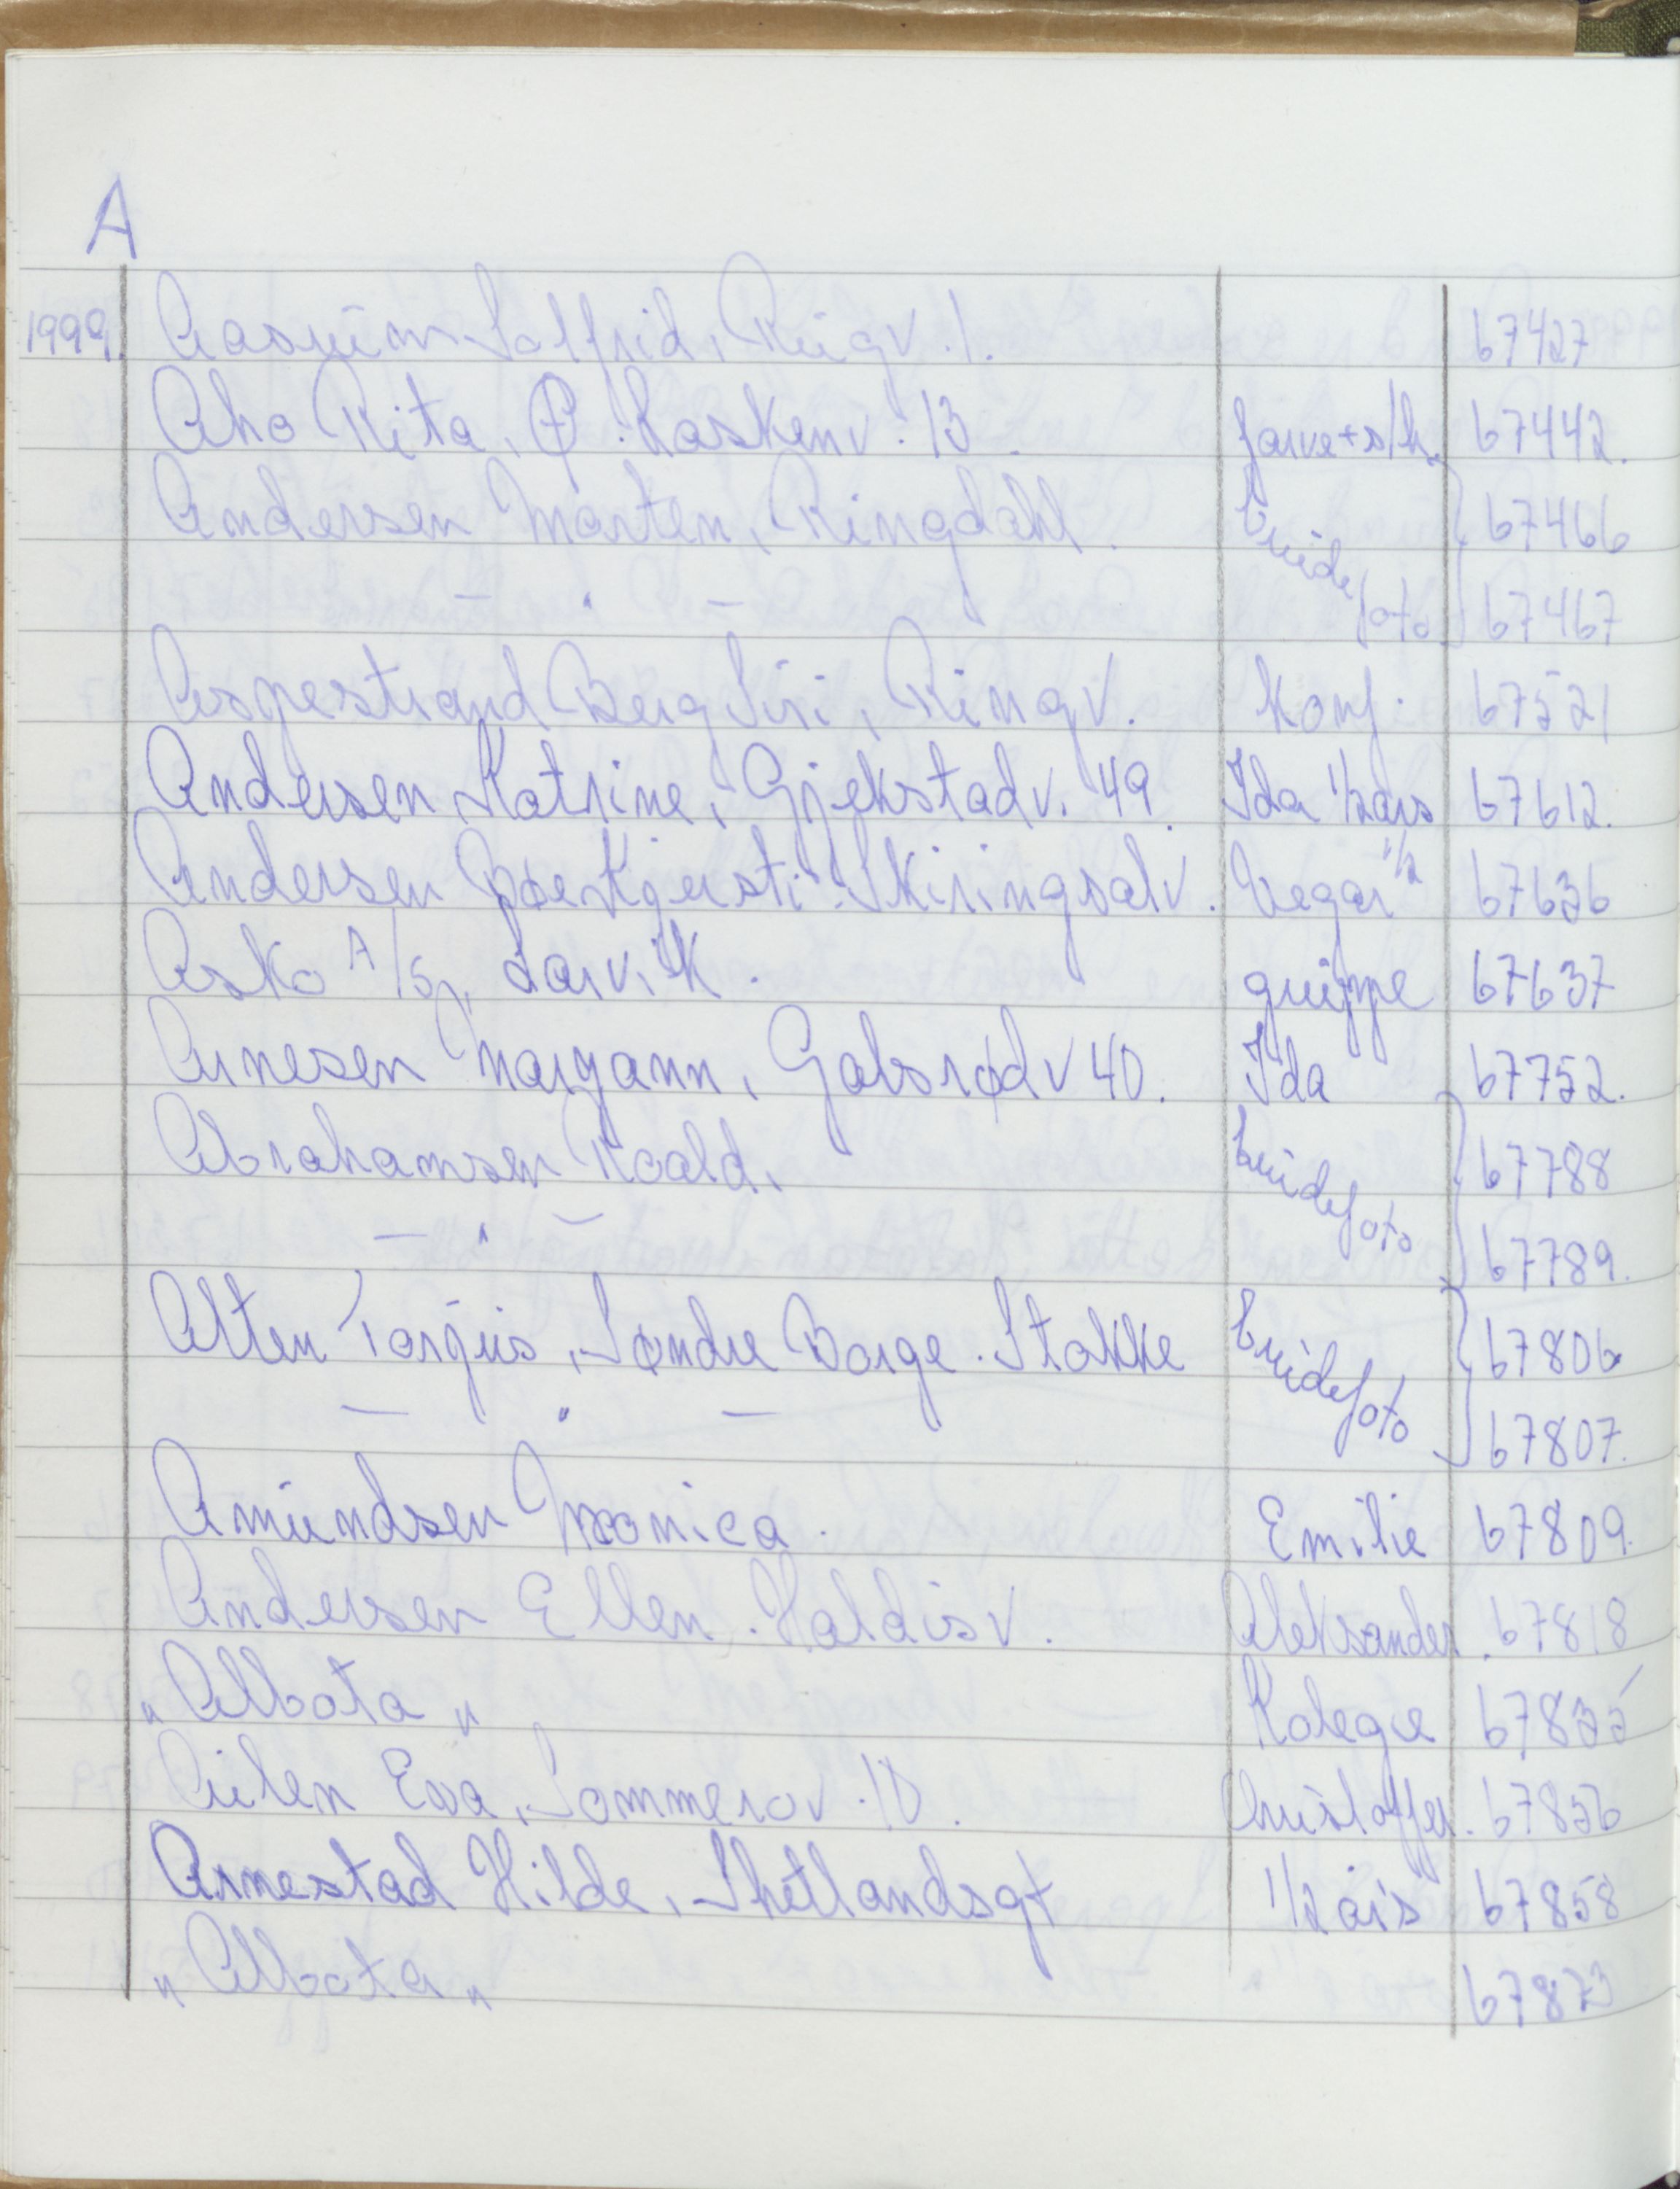 A
1999. Aasrum Solfrid, Ringv. 1. 67427
Aho Rita, P. Laskenv. 13. farve + s/h. 67442.
Andersen Morten, Ringdahl. brude 67466
— " — foto 67467
Aspestrand Berg Siri, Ringv. Konf. 67521
Andersen Katrine, Gjekstadv. 49. Ida 1/2 års 67612.
Andersen Kjersti. Skiringsalv. Vegar 1/2 67636
Asko A/S, Larvik. gruppe 67637
Arnesen Margann, Gabsrødv 40. Ida 67752.
Abrahamsen Roald, brudefoto 67788
— " — 67789.
Alten Torjus, Søndre Borge. Stokke brudefoto 67806
— " — 67807.
Amundsen Monica. Emilie 67809.
Andersen Ellen. Haldisv. Aleksander. 67818
"Albata" Kolegie
Eva, Sommerov. 10. Christoffer. 67856
Arnestad Hilde, Shetlandsgt 1/2 års 67858
"Albata" 67873